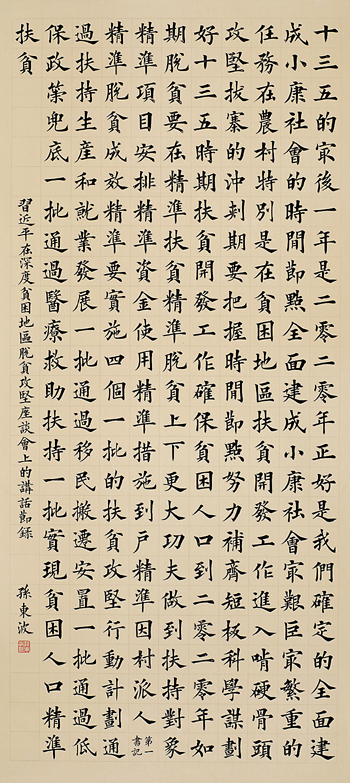 十三五的最後一年是二零二零年正好是我們確定的全面建
成小康社會的時間節點全面建成小康社會最艱巨最繁重的
任務在農村特別是在貧困地區扶貧開發工作進入啃硬骨頭
攻堅拔寨的沖刺期要把握時間節點努力補齊短板科學謀劃
好十三五時期扶貧開發工作確保貧困人口到二零二零年如
期脫貧要在精準扶貧精準脫貧上下更大功夫做到扶持對象
精準項目安排精準資金使用精準措施到戶精準因村派人第一書記
精準脫貧成效精準要實施四個一批的扶貧攻堅行動計劃通
過扶持生產和就業發展一批通過移民搬遷安置一批通過低
保政策兜底一批通過醫療救助扶持一批實現貧困人口精準
扶貧
習近平在深度貧困地區脫貧攻堅座談會上的講話節錄 孫東波